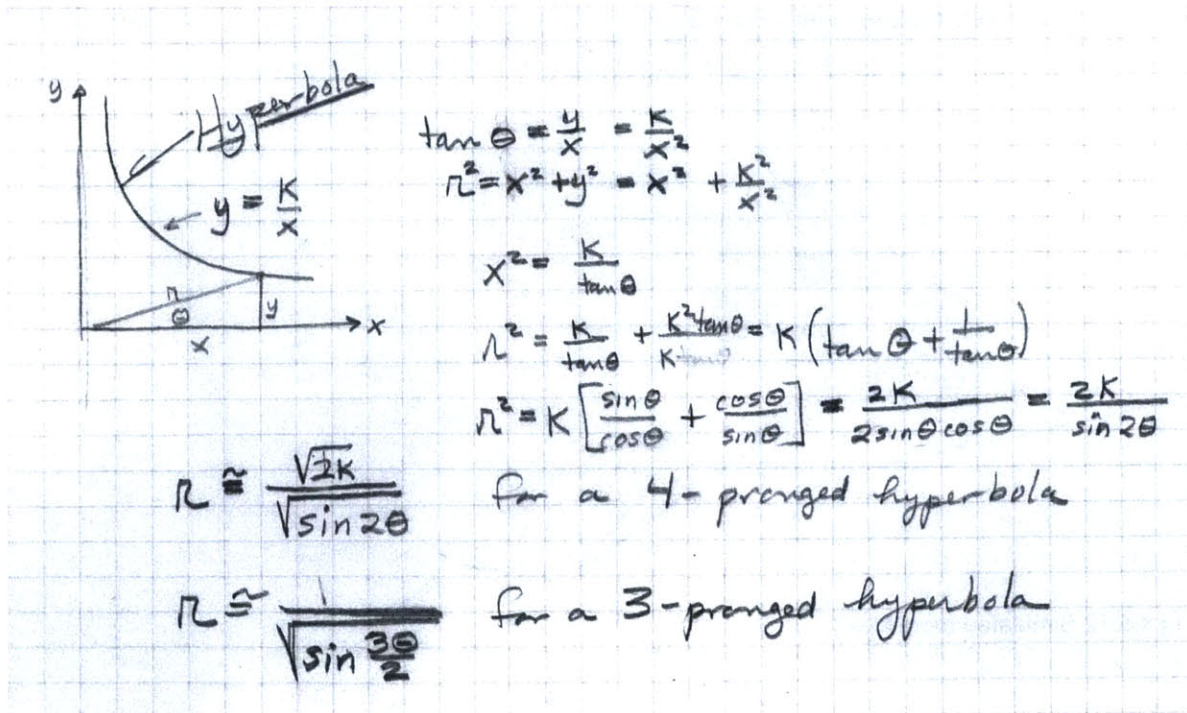 y
Hyperbola
y = K/x
r
θ
y
x
x
tan θ = y/x = K/x²
r² = x² + y² = x² + K²/x²
x² = K/tan θ
r² = K/tan θ + K² tan θ/K = K (tan θ + 1/tan θ)
r² = K [sin θ/cos θ + cos θ/sin θ] = 2K/2 sin θ cos θ = 2K/sin 2θ
r ≅ √2K/√sin 2θ for a 4-pronged hyperbola
r ≅ 1/√sin 3θ/2 for a 3-pronged hyperbola